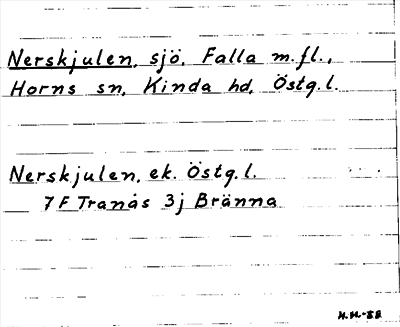 Nerskjulen, sjö, Falla m.fl.,
Horns sn, Kinda hd, Östg.l.
Nerskjulen, ek. Östg.l.
7F Tranås 3j Bränna
H.H.-88